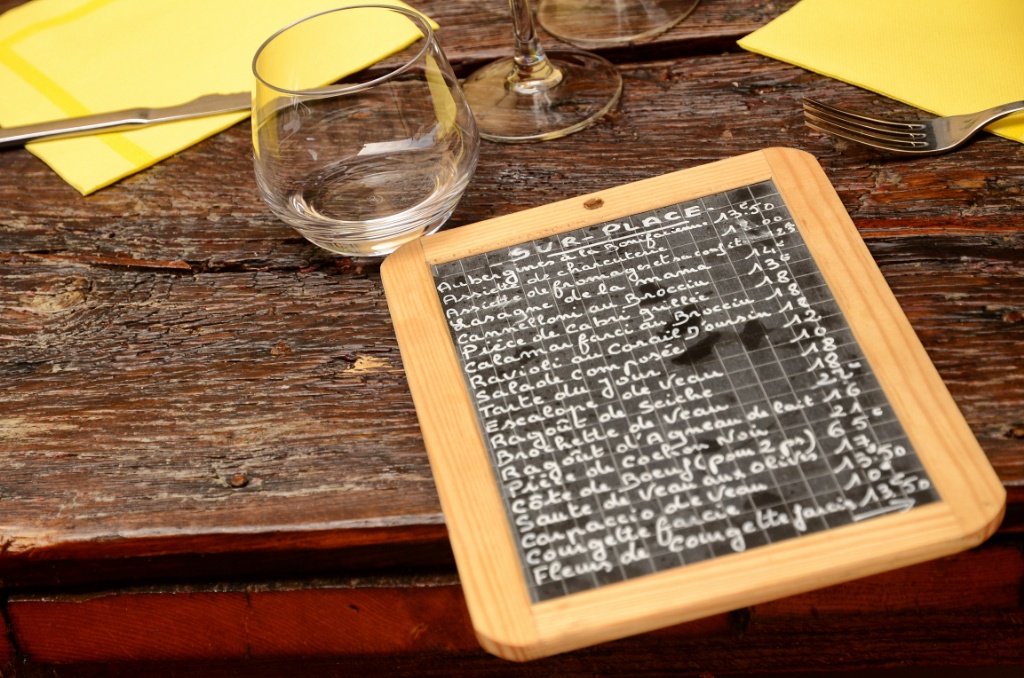 SUR-PLACE
Aubergines à la Bonifacienne 13.50
Assiette de charcuterie
Assiette de fromages et sa confit
Lasagne de la mama 14€
Cannelloni au Brocciu 13€
Pièce de Cabri grillée 18
Calamar farci au Brocciu 18
Ravioli au Corail D'oursin 18
Salade Composée 12
Tarte du jour 10
Escalope de Veau 18
Ragoût de Seiche 18
Brochette de Veau
Ragoût d'Agneau de lait
Pièce de Cochon Noir
Côte de Boeuf (pour 2 ) 65
Sauté de Veau aux Olives
Carpaccio de Veau
Courgette farcie 10€
Fleurs de Courgette farcies 13,50